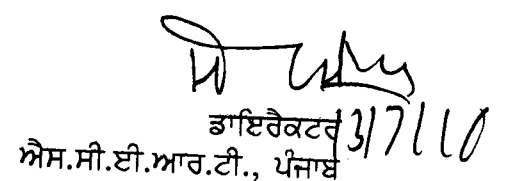 ਡਾਇਰੈਕਟਰ 3/7/10
ਐਸ.ਸੀ.ਈ.ਆਰ.ਟੀ., ਪੰਜਾਬ